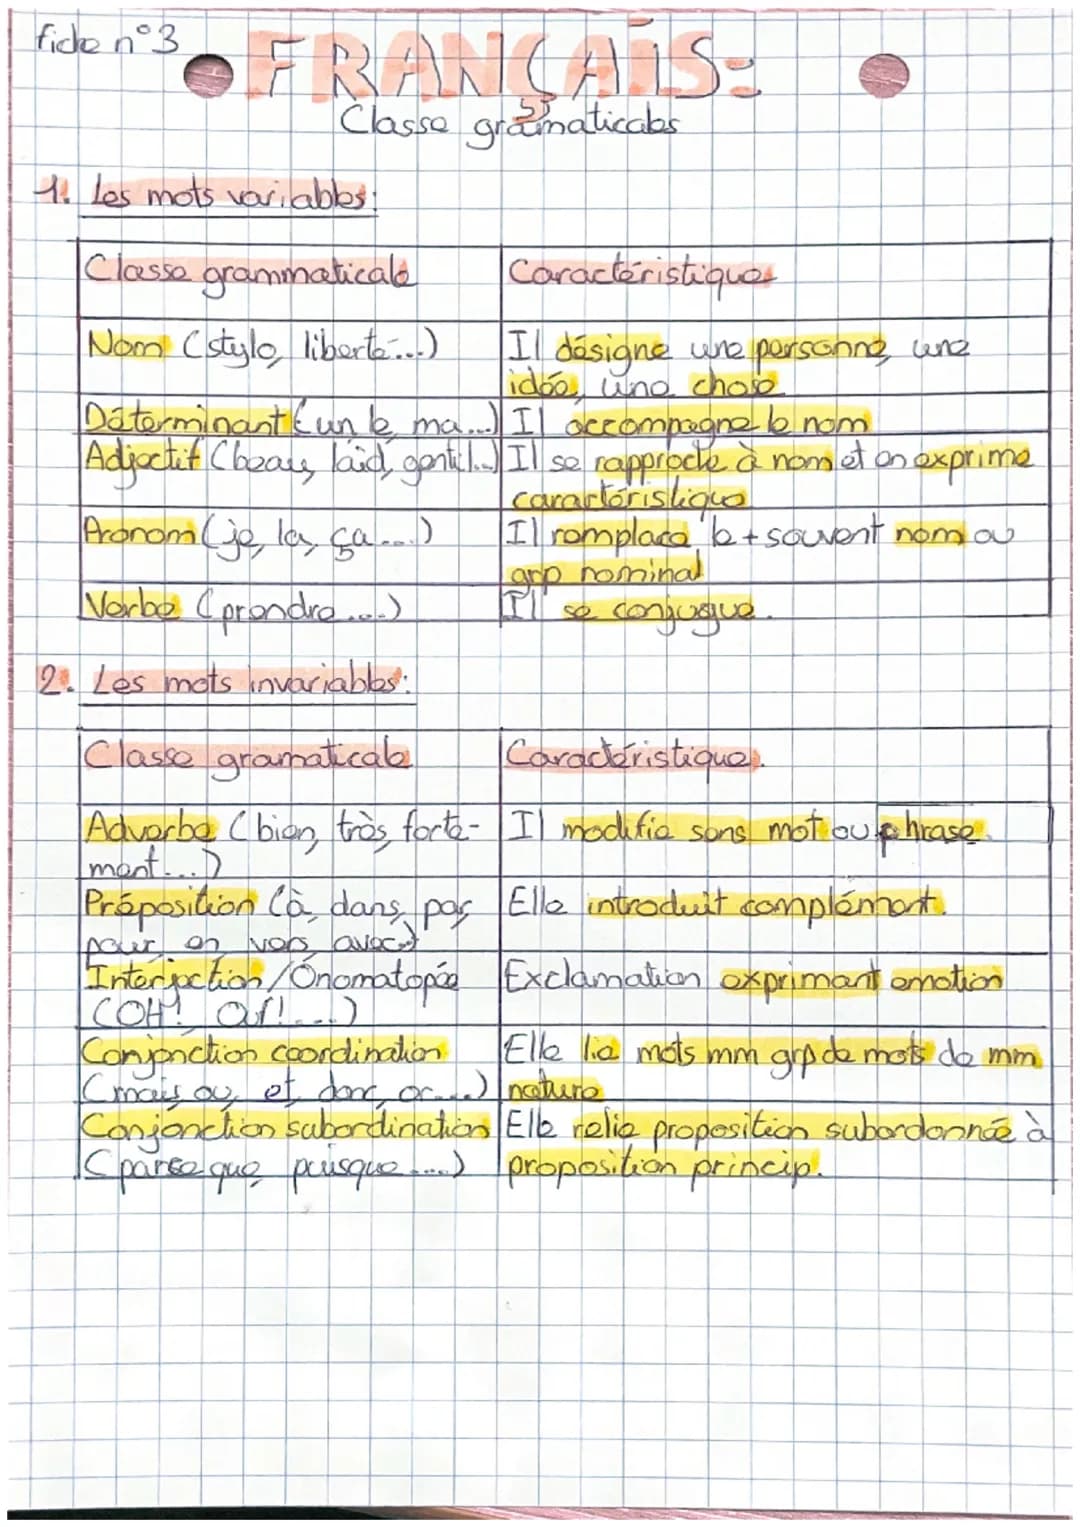 fiche n°3
FRANÇAIS:
Classe gramaticales
1. Les mots variables:
Classe grammaticale
Caractéristiques
Nom (stylo, liberté...)
Il désigne une personne, une
idée, une chose
Déterminant (un le, ma...)
Il accompagne le nom
Adjectif (beau, laid, gentil...)
Il se rapproche à nom et en exprime
caractéristique
Pronom (je, la, ça....)
Il remplace le + souvent nom ou
grp nominal
Verbe (prendre....)
Il se conjugue.
2. Les mots invariables:
Classe gramaticale
Caractéristique.
Adverbe (bien, très, forte-
ment....)
Il modifie sens mot ou phrase.
Préposition (à, dans, par
pour, en vers, avec.)
Elle introduit complément.
Interjection/Onomatopée
(OH! Ouf!....)
Exclamation exprimant emotion
Conjonction coordination
(mais, ou, et, donc, or....)
Elle lie mots mm grp de mots de mm
nature
Conjonction subordination
(parce que, puisque....)
Elle relie proposition subordonnée à
proposition princip.